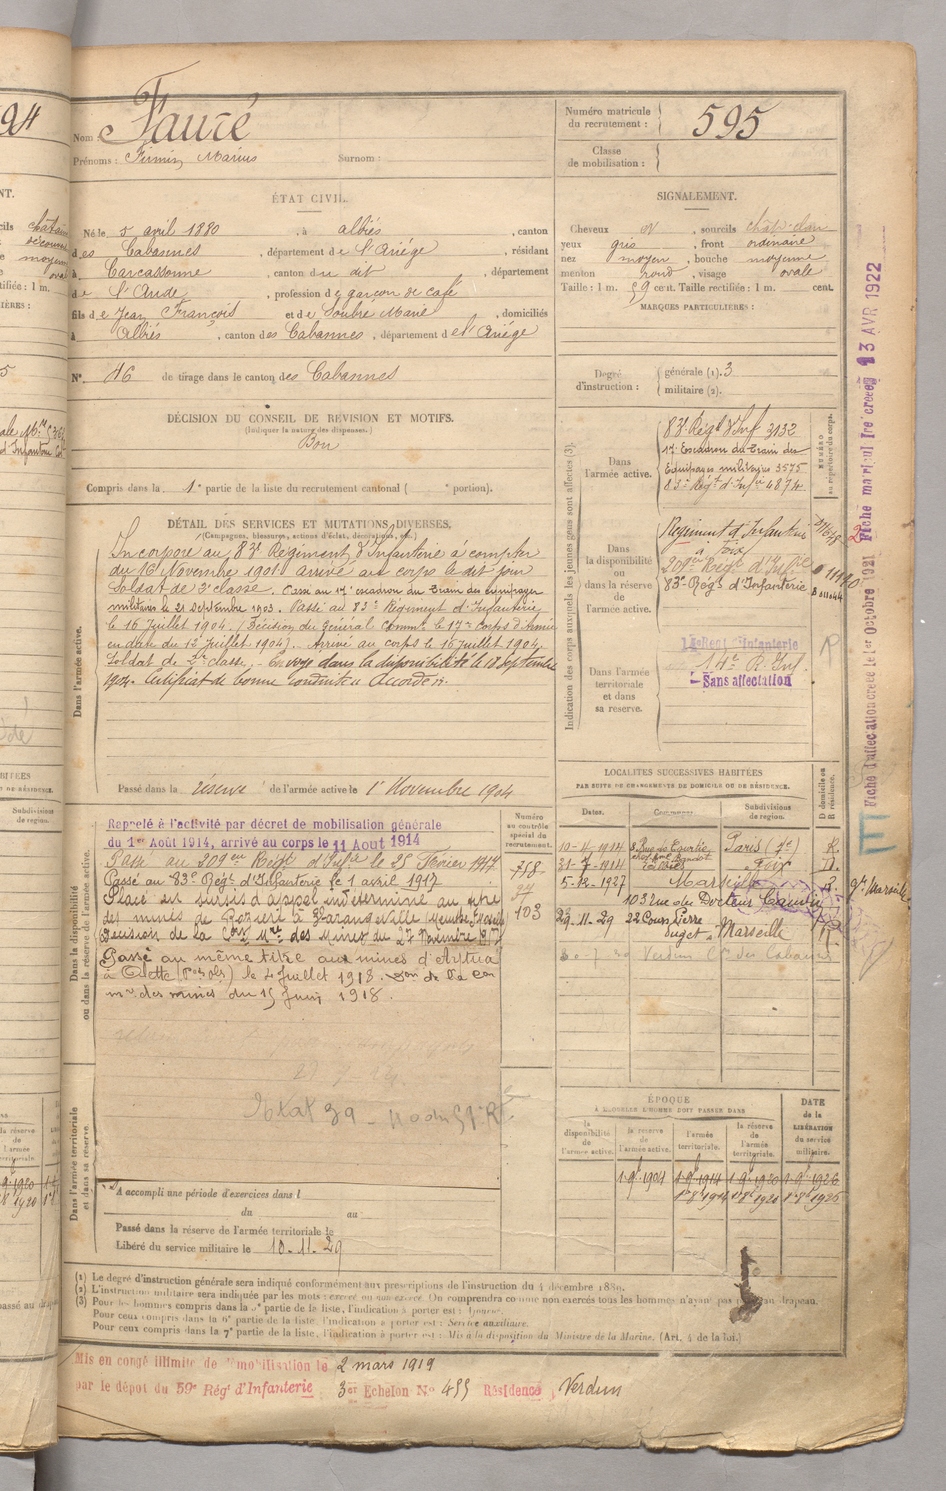 94
Numéro matricule du recrutement : 595
Nom : Fauré
Prénoms : Firmin, Marius Surnom :
Classe de mobilisation :
ÉTAT CIVIL.
Né le 5 avril 1880, à Albiès, canton
des Cabannes, département de l'Ariége, résidant
à Carcassonne, canton du dit, département
de l'Aude, profession d garçon de café
fils de Jean François et de Soubre Marie, domiciliés
à Albiès, canton des Cabannes, département de l'Ariége
N° 46 de tirage dans le canton des Cabannes
SIGNALEMENT.
Cheveux , sourcils
yeux gris, front ordinaire
nez moyen, bouche moyenne
menton rond, visage ovale
Taille : 1 m. 59 cent. Taille rectifiée : 1 m. cent.
MARQUES PARTICULIÈRES :
Degré d'instruction : générale (1). 3
militaire (2).
DÉCISION DU CONSEIL DE REVISION ET MOTIFS.
(Indiquer la nature des dispenses.)
Bon
Compris dans la 1e partie de la liste du recrutement cantonal ( portion).
DÉTAIL DES SERVICES ET MUTATIONS DIVERSES.
(Campagnes, blessures, actions d'éclat, décorations, etc.)
Dans l'armée active.
Incorporé au 83e Régiment d'Infanterie à compter
du 16 Novembre 1901 arrivé au corps le dit jour
Soldat de 2e classe. Passé au 17e escadron du Train des équipages
militaires le 21 septembre 1903. Passé au 83e Régiment d'Infanterie
le 16 Juillet 1904. (Décision du Général Commt le 17e Corps d'Armée
en date du 12 Juillet 1904). Arrivé au corps le 16 juillet 1904.
Soldat de 2e classe. Envoyé dans la disponibilité le 18 septembre
1904. Certificat de bonne conduite accordé.
Passé dans la réserve de l'armée active le 1er Novembre 1904
Indication des corps auxquels les jeunes gens sont affectés (3).
NUMÉRO au répertoire du corps.
Dans l'armée active.
83e Régt d'Inf 3132
17e Escadron du Train des
Equipages militaires 3575
83e Régt d'Inf 4874
Dans la disponibilité ou dans la réserve de l'armée active.
Régiment d'Infanterie
à Foix
209e Régt d'Infie
83e Régt d'Infanterie
Dans l'armée territoriale et dans sa réserve.
14e R. Inf.
Sans affectation
Fiche d'affectation créée le 1er Octobre 1921
13 AVR 1922
LOCALITÉS SUCCESSIVES HABITÉES
PAR SUITE DE CHANGEMENTS DE DOMICILE OU DE RÉSIDENCE.
Dates. Communes. Subdivisions de région. D domicile ou R résidence.
10-4-1914 Paris R.
21-7-1914 Albiès Foix D.
5-12-1927 Marseille R.
103 rue du Docteur Cauvin
29-11-29 22 Cours Pierre
Puget Marseille
Verdun Cn des Cabannes
Dans la disponibilité ou dans la réserve de l'armée active.
Numéro au contrôle spécial du recrutement.
758
103
Rappelé à l'activité par décret de mobilisation générale
du 1er Août 1914, arrivé au corps le 11 Aout 1914
Passé au 209e Régt d'Infie le 25 Février 1917
Passé au 83e Régt d'Infanterie le 1 avril 1917
Placé en sursis d'appel indéterminé au titre
des mines de à Varangeville (Meurthe Moselle)
(Décision de la Cion Mre des Mines du 27 Novembre 1917)
Passé au même titre aux mines d'
à (Pces ) le 4 Juillet 1918. Don de la Con
mre des mines du 15 Juin 1918.
ÉPOQUE
À LAQUELLE L'HOMME DOIT PASSER DANS
la disponibilité de l'armée active. la réserve de l'armée active. l'armée territoriale. la réserve de l'armée territoriale. DATE de la LIBÉRATION du service militaire.
1 9e 1904 1 9e 1914 1 9e 1920 1 9e 1926
1er 8e 1914 1er 8e 1920 1er 8e 1926
Dans l'armée territoriale et dans sa réserve.
A accompli une période d'exercices dans l
du au
Passé dans la réserve de l'armée territoriale le
Libéré du service militaire le 10.11.29
(1) Le degré d'instruction générale sera indiqué conformément aux prescriptions de l'instruction du 4 décembre 1889.
(2) L'instruction militaire sera indiquée par les mots : exercé ou non exercé. On comprendra comme non exercés tous les hommes n'ayant pas au drapeau.
(3) Pour les hommes compris dans la 5e partie de la liste, l'indication à porter est :
Pour ceux compris dans la 6e partie de la liste, l'indication à porter est : Service auxiliaire.
Pour ceux compris dans la 7e partie de la liste, l'indication à porter est : Mis à la disposition du Ministre de la Marine. (Art. 4 de la loi.)
Mis en congé illimité de démobilisation le 2 mars 1919
par le dépot du 59e Régt d'Infanterie 3er Echelon No 455 Résidence Verdun